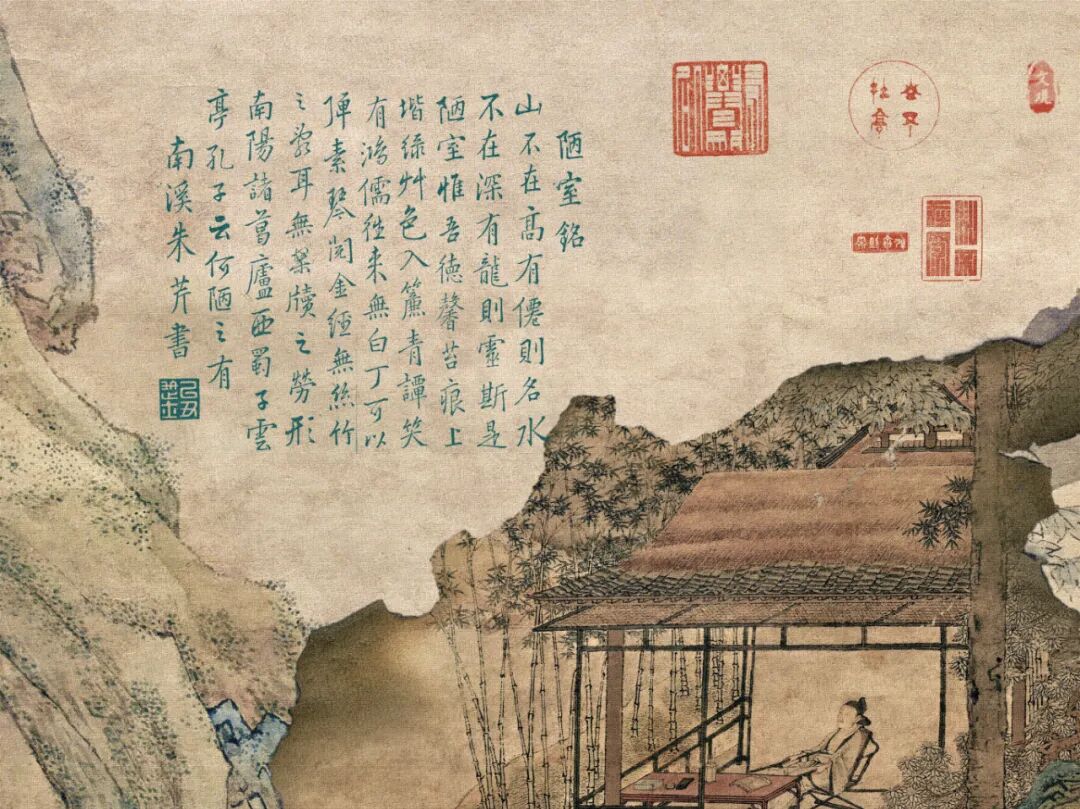 陋室銘
山不在高有僊則名水
不在深有龍則靈斯是
陋室惟吾德馨苔痕上
堦綠艸色入簾青譚笑
有鴻儒往来無白丁可以
彈素琴閱金經無絲竹
之亂耳無案牘之勞形
南陽諸葛廬西蜀子雲
亭孔子云何陋之有
南溪朱芹書